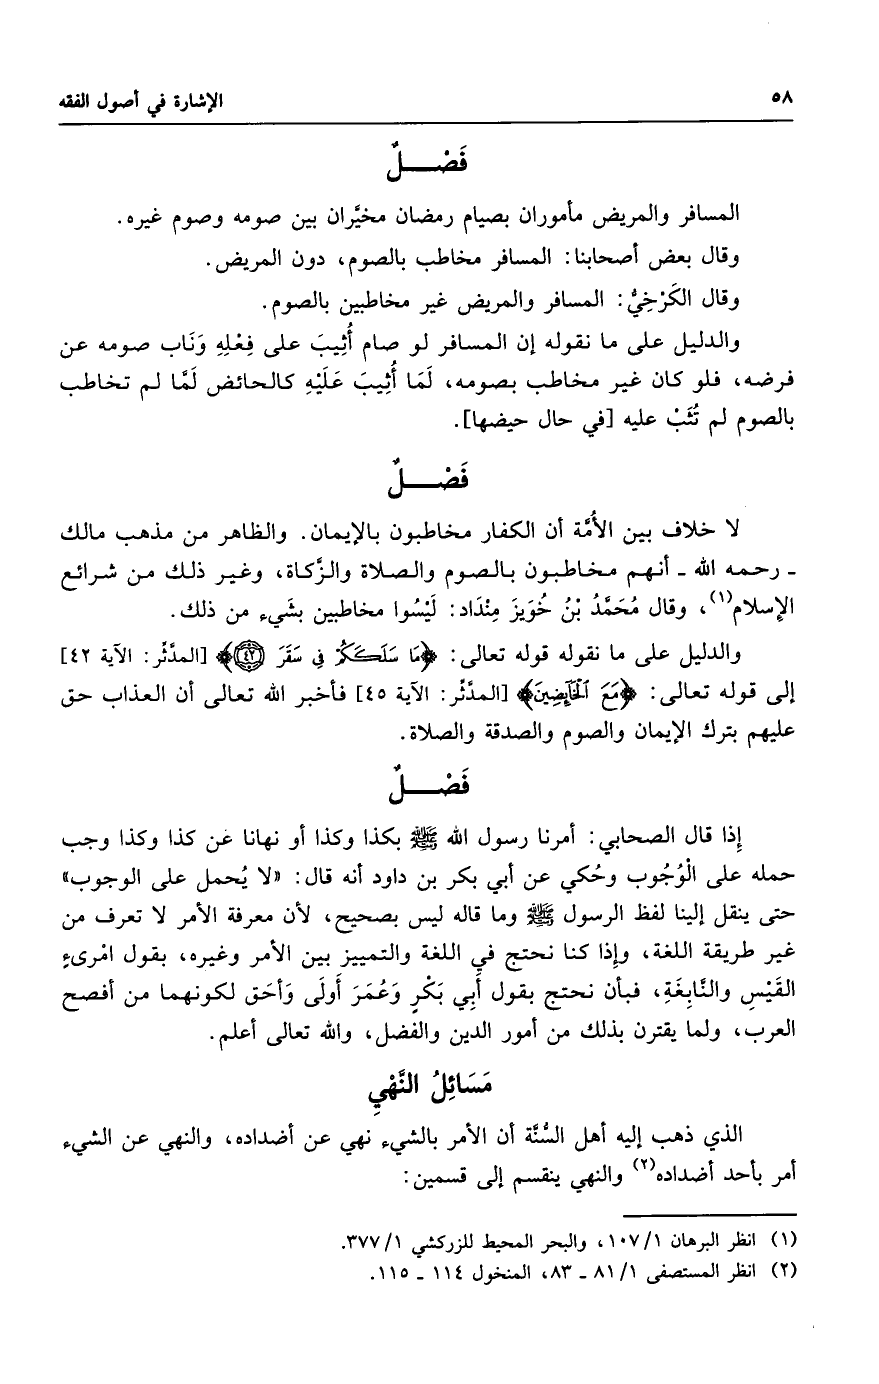 ٥٨ الإشارة في أصول الفقه
فَصْـــلٌ
المسافر والمريض مأموران بصيام رمضان مخيَّران بين صومه وصوم غيره.
وقال بعض أصحابنا: المسافر مخاطب بالصوم، دون المريض.
وقال الكَرْخِيُّ: المسافر والمريض غير مخاطبين بالصوم.
والدليل على ما نقوله إن المسافر لو صام أُثِيبَ على فِعْلِهِ وَنَاب صومه عن
فرضه، فلو كان غير مخاطب بصومه، لَمَا أُثِيبَ عَلَيْهِ كالحائض لَمَّا لم تخاطب
بالصوم لم تُثَبْ عليه [في حال حيضها].
فَصْـــلٌ
لا خلاف بين الأُمَّة أن الكفار مخاطبون بالإيمان. والظاهر من مذهب مالك
ـ رحمه الله ـ أنهم مخاطبون بالصوم والصلاة والزَّكاة، وغير ذلك من شرائع
الإسلام(١)، وقال مُحَمَّدُ بْنُ خُوَيزَ مِنْدَاد: لَيْسُوا مخاطبين بشَيء من ذلك.
والدليل على ما نقوله قوله تعالى: ﴿مَا سَلَكَكُمْ فِي سَقَرَ ﴿٤٢﴾﴾ [المدَّثِّر: الآية ٤٢]
إلى قوله تعالى: ﴿مَعَ ٱلْخَآئِضِينَ﴾ [المدَّثِّر: الآية ٤٥] فأخبر الله تعالى أن العذاب حق
عليهم بترك الإيمان والصوم والصدقة والصلاة.
فَصْـــلٌ
إذا قال الصحابي: أمرنا رسول الله ﷺ بكذا وكذا أو نهانا عن كذا وكذا وجب
حمله على الْوُجُوب وحُكي عن أبي بكر بن داود أنه قال: «لا يُحمل على الوجوب»
حتى ينقل إلينا لفظ الرسول ﷺ وما قاله ليس بصحيح، لأن معرفة الأمر لا تعرف من
غير طريقة اللغة، وإذا كنا نحتج في اللغة والتمييز بين الأمر وغيره، بقول امْرىءِ
القَيْسِ والنَّابِغَةِ، فبأن نحتج بقول أَبِي بَكْرٍ وَعُمَرَ أَولَى وَأحَق لكونهما من أفصح
العرب، ولما يقترن بذلك من أمور الدين والفضل، والله تعالى أعلم.
مَسَائِلُ النَّهْيِ
الذي ذهب إليه أهل السُّنَّة أن الأمر بالشيء نهي عن أضداده، والنهي عن الشيء
أمر بأحد أضداده(٢) والنهي ينقسم إلى قسمين:
(١) انظر البرهان ١٠٧/١، والبحر المحيط للزركشي ٣٧٧/١.
(٢) انظر المستصفى ٨١/١ ـ ٨٣، المنخول ١١٤ ـ ١١٥.